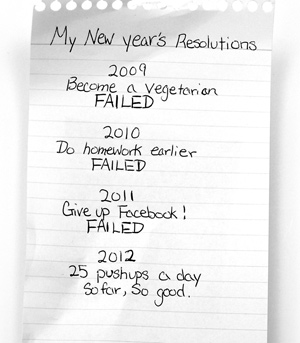 My New year's Resolutions
2009
Become a vegetarian
FAILED
2010
Do homework earlier
FAILED
2011
Give up Facebook!
FAILED
2012
25 pushups a day
So far, So good.